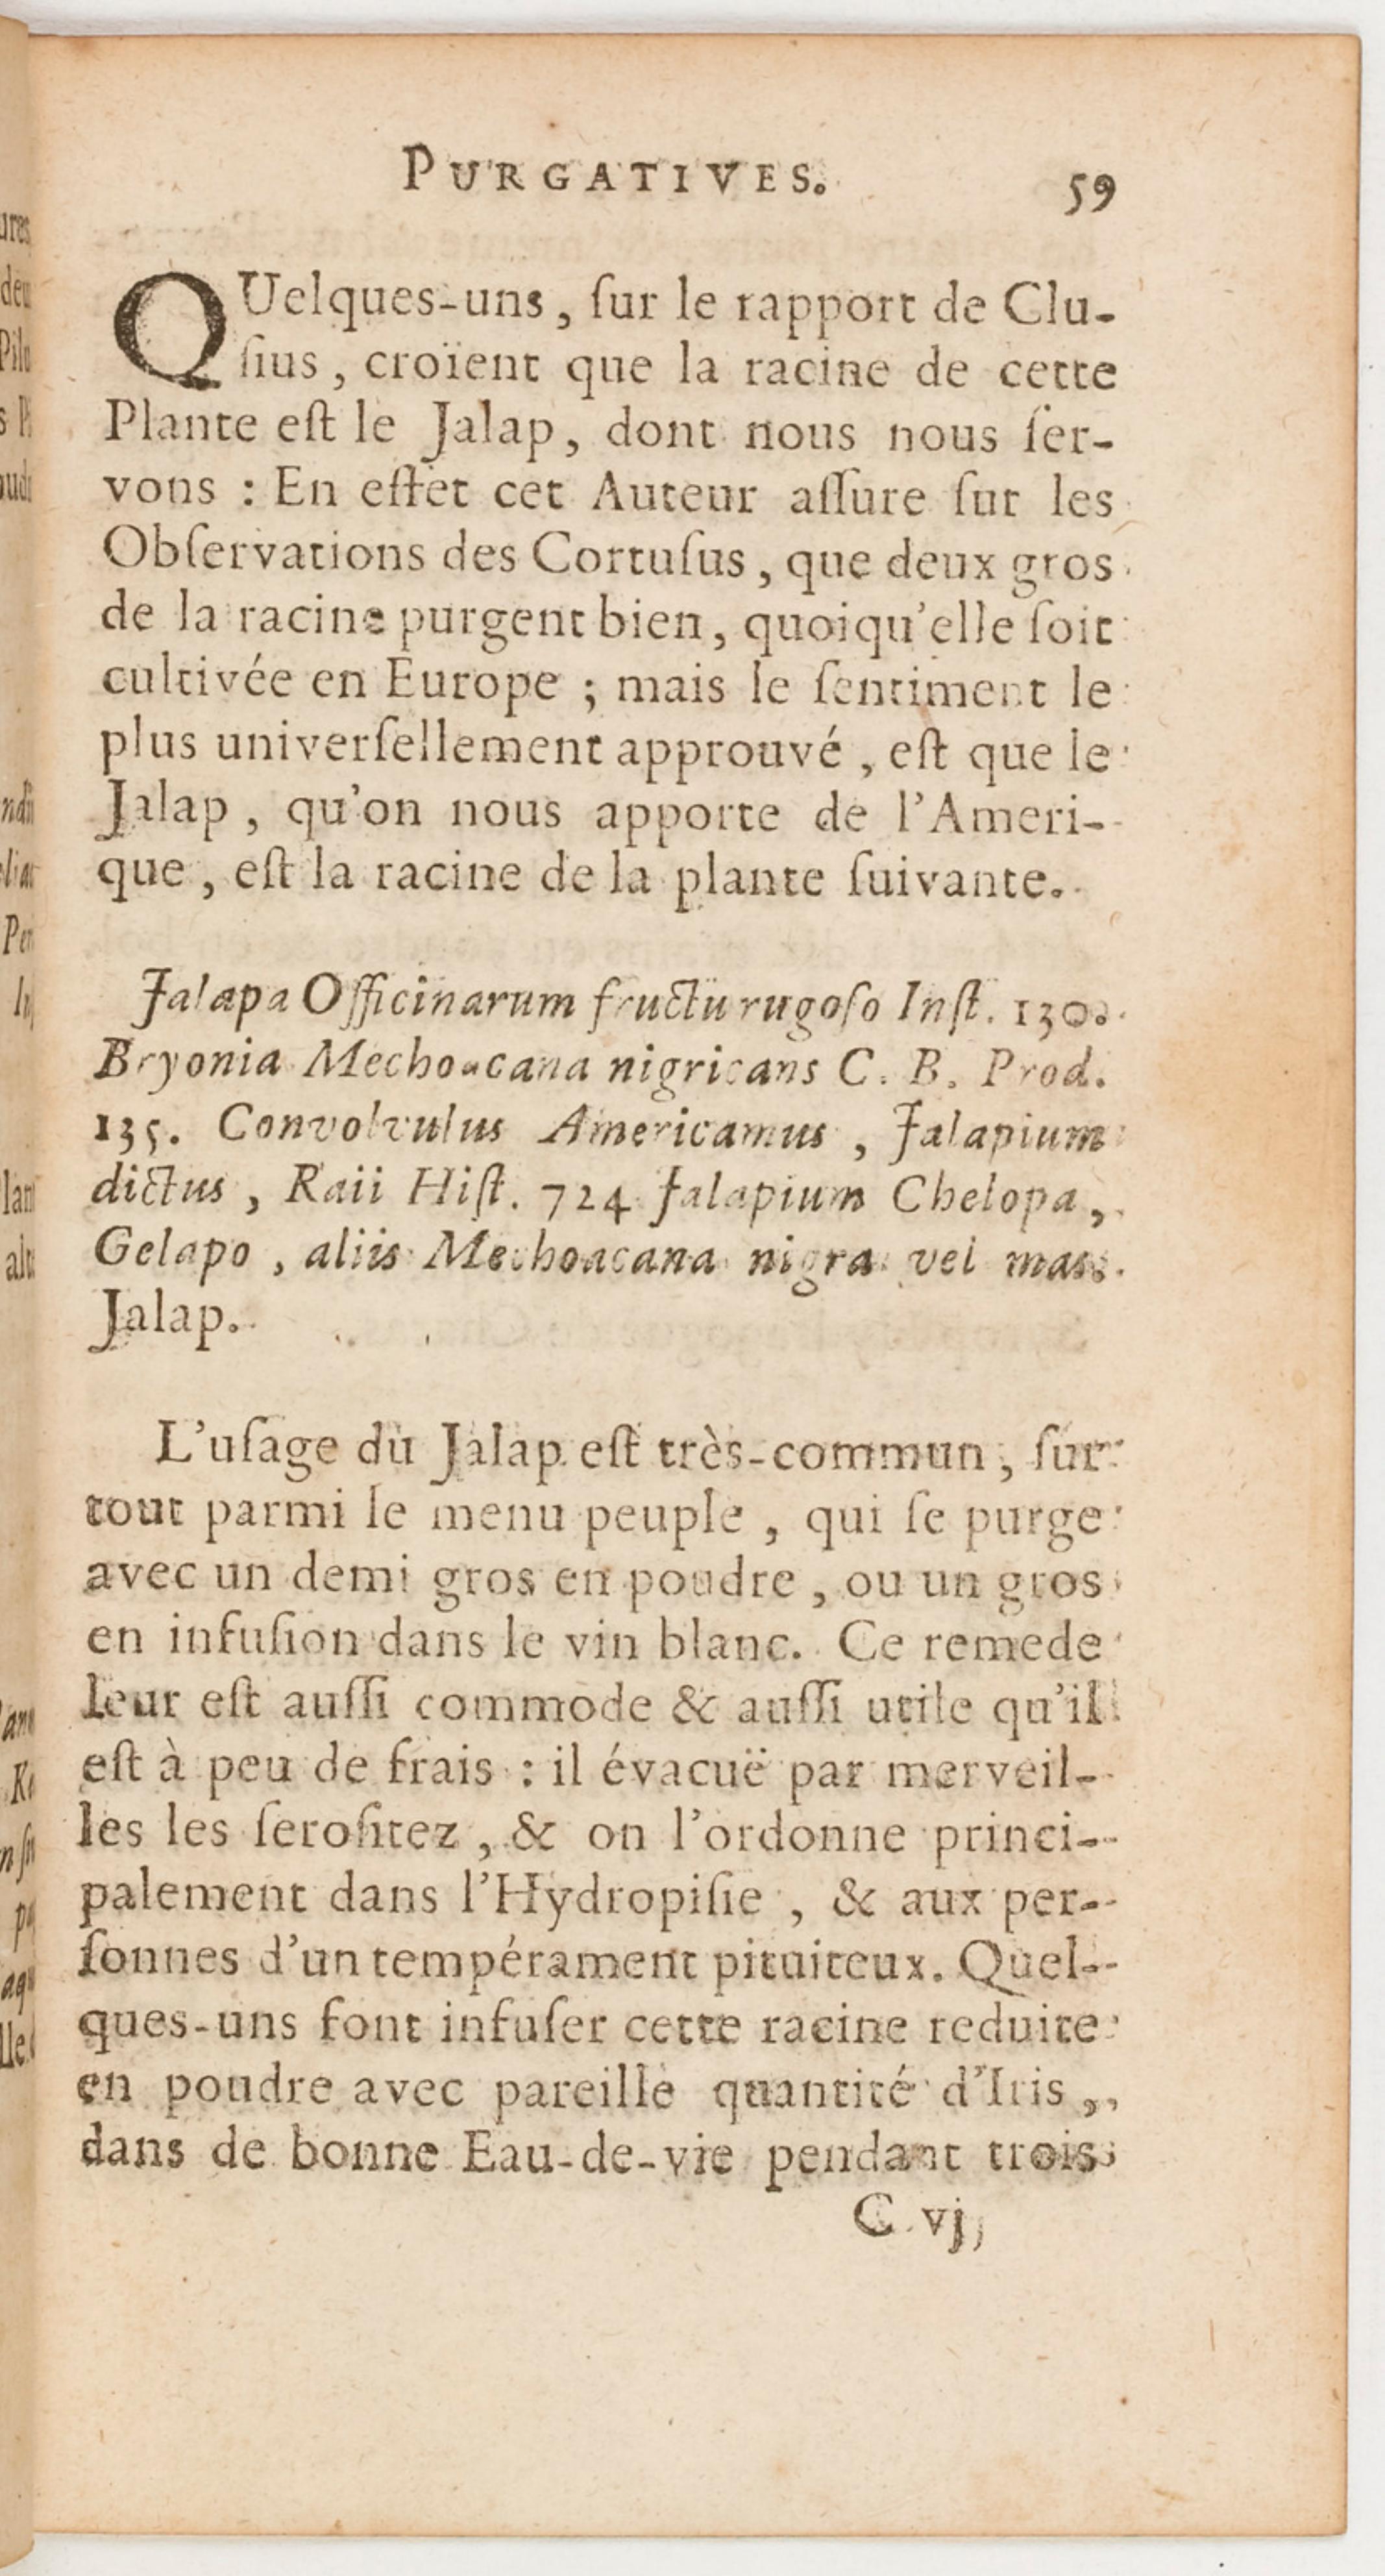 PURGATIVES. 59
QUelques-uns, ſur le rapport de Clu-
ſius, croïent que la racine de cette
Plante eſt le Jalap, dont nous nous ſer-
vons : En effet cet Auteur aſſure ſur les
Obſervations des Cortuſus, que deux gros
de la racine purgent bien, quoiqu'elle ſoit
cultivée en Europe ; mais le ſentiment le
plus univerſellement approuvé, eſt que le
Jalap, qu'on nous apporte de l'Ameri-
que, eſt la racine de la plante ſuivante.
Jalapa Officinarum fructu rugoſo Inſt. 130.
Bryonia Mechoacana nigricans C. B. Prod.
135. Convolvulus Americamus, Jalapium
dictus, Raii Hiſt. 724 Jalapium Chelopa,
Gelapo, aliis Mechoacana nigra vel mas.
Jalap.
L'uſage du Jalap eſt très-commun, ſur
tout parmi le menu peuple, qui ſe purge
avec un demi gros en poudre, ou un gros
en infuſion dans le vin blanc. Ce remede
leur eſt auſſi commode & auſſi utile qu'il
eſt à peu de frais : il évacuë par merveil-
les les ſeroſitez, & on l'ordonne princi-
palement dans l'Hydropiſie, & aux per-
ſonnes d'un tempérament pituiteux. Quel-
ques-uns font infuſer cette racine reduite
en poudre avec pareille quantité d'Iris,
dans de bonne Eau-de-vie pendant trois
C vj